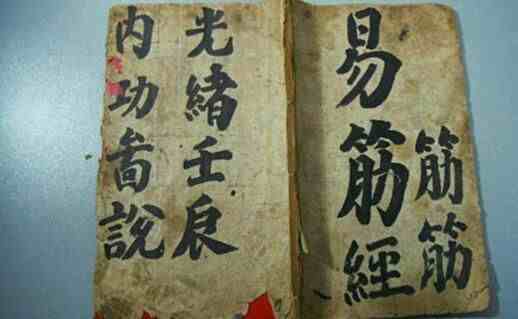 筋筋
易筋經
光緒壬辰
内功啚說